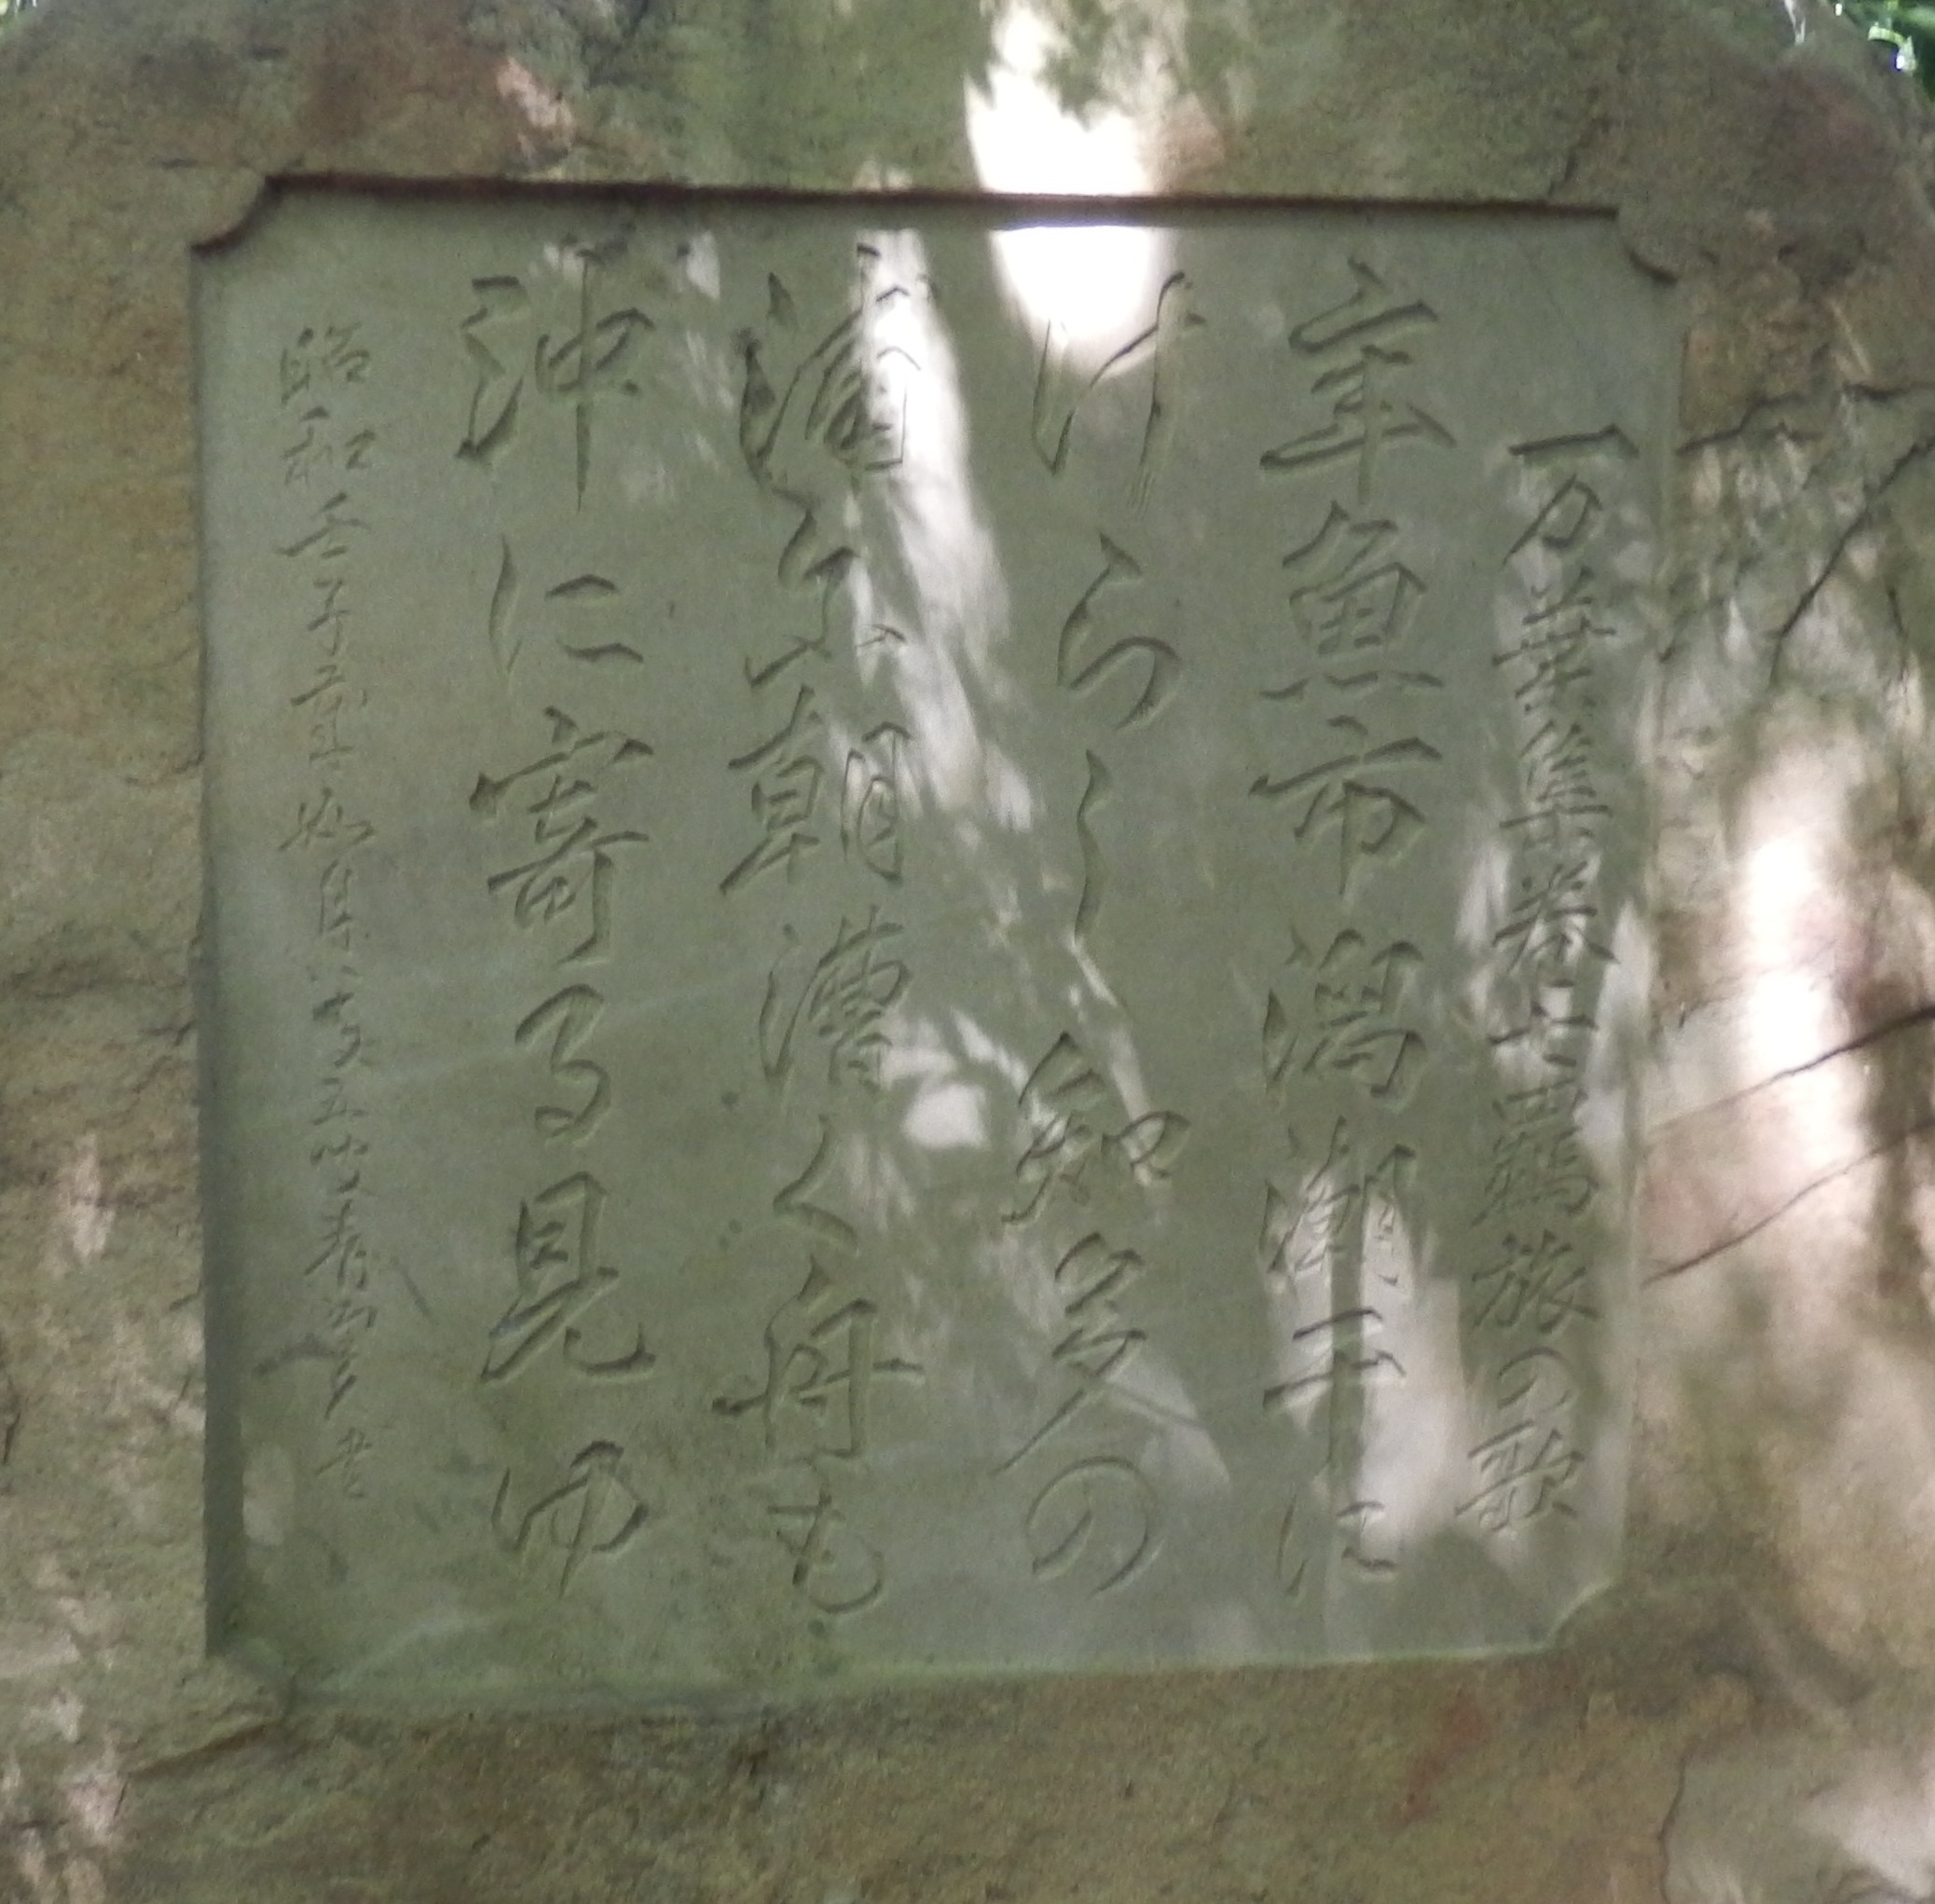 万葉集巻七羇旅の歌
年魚市潟潮干に
けらし知多の
浦に朝漕く舟も
沖に寄る見ゆ
昭和壬子 如月 書